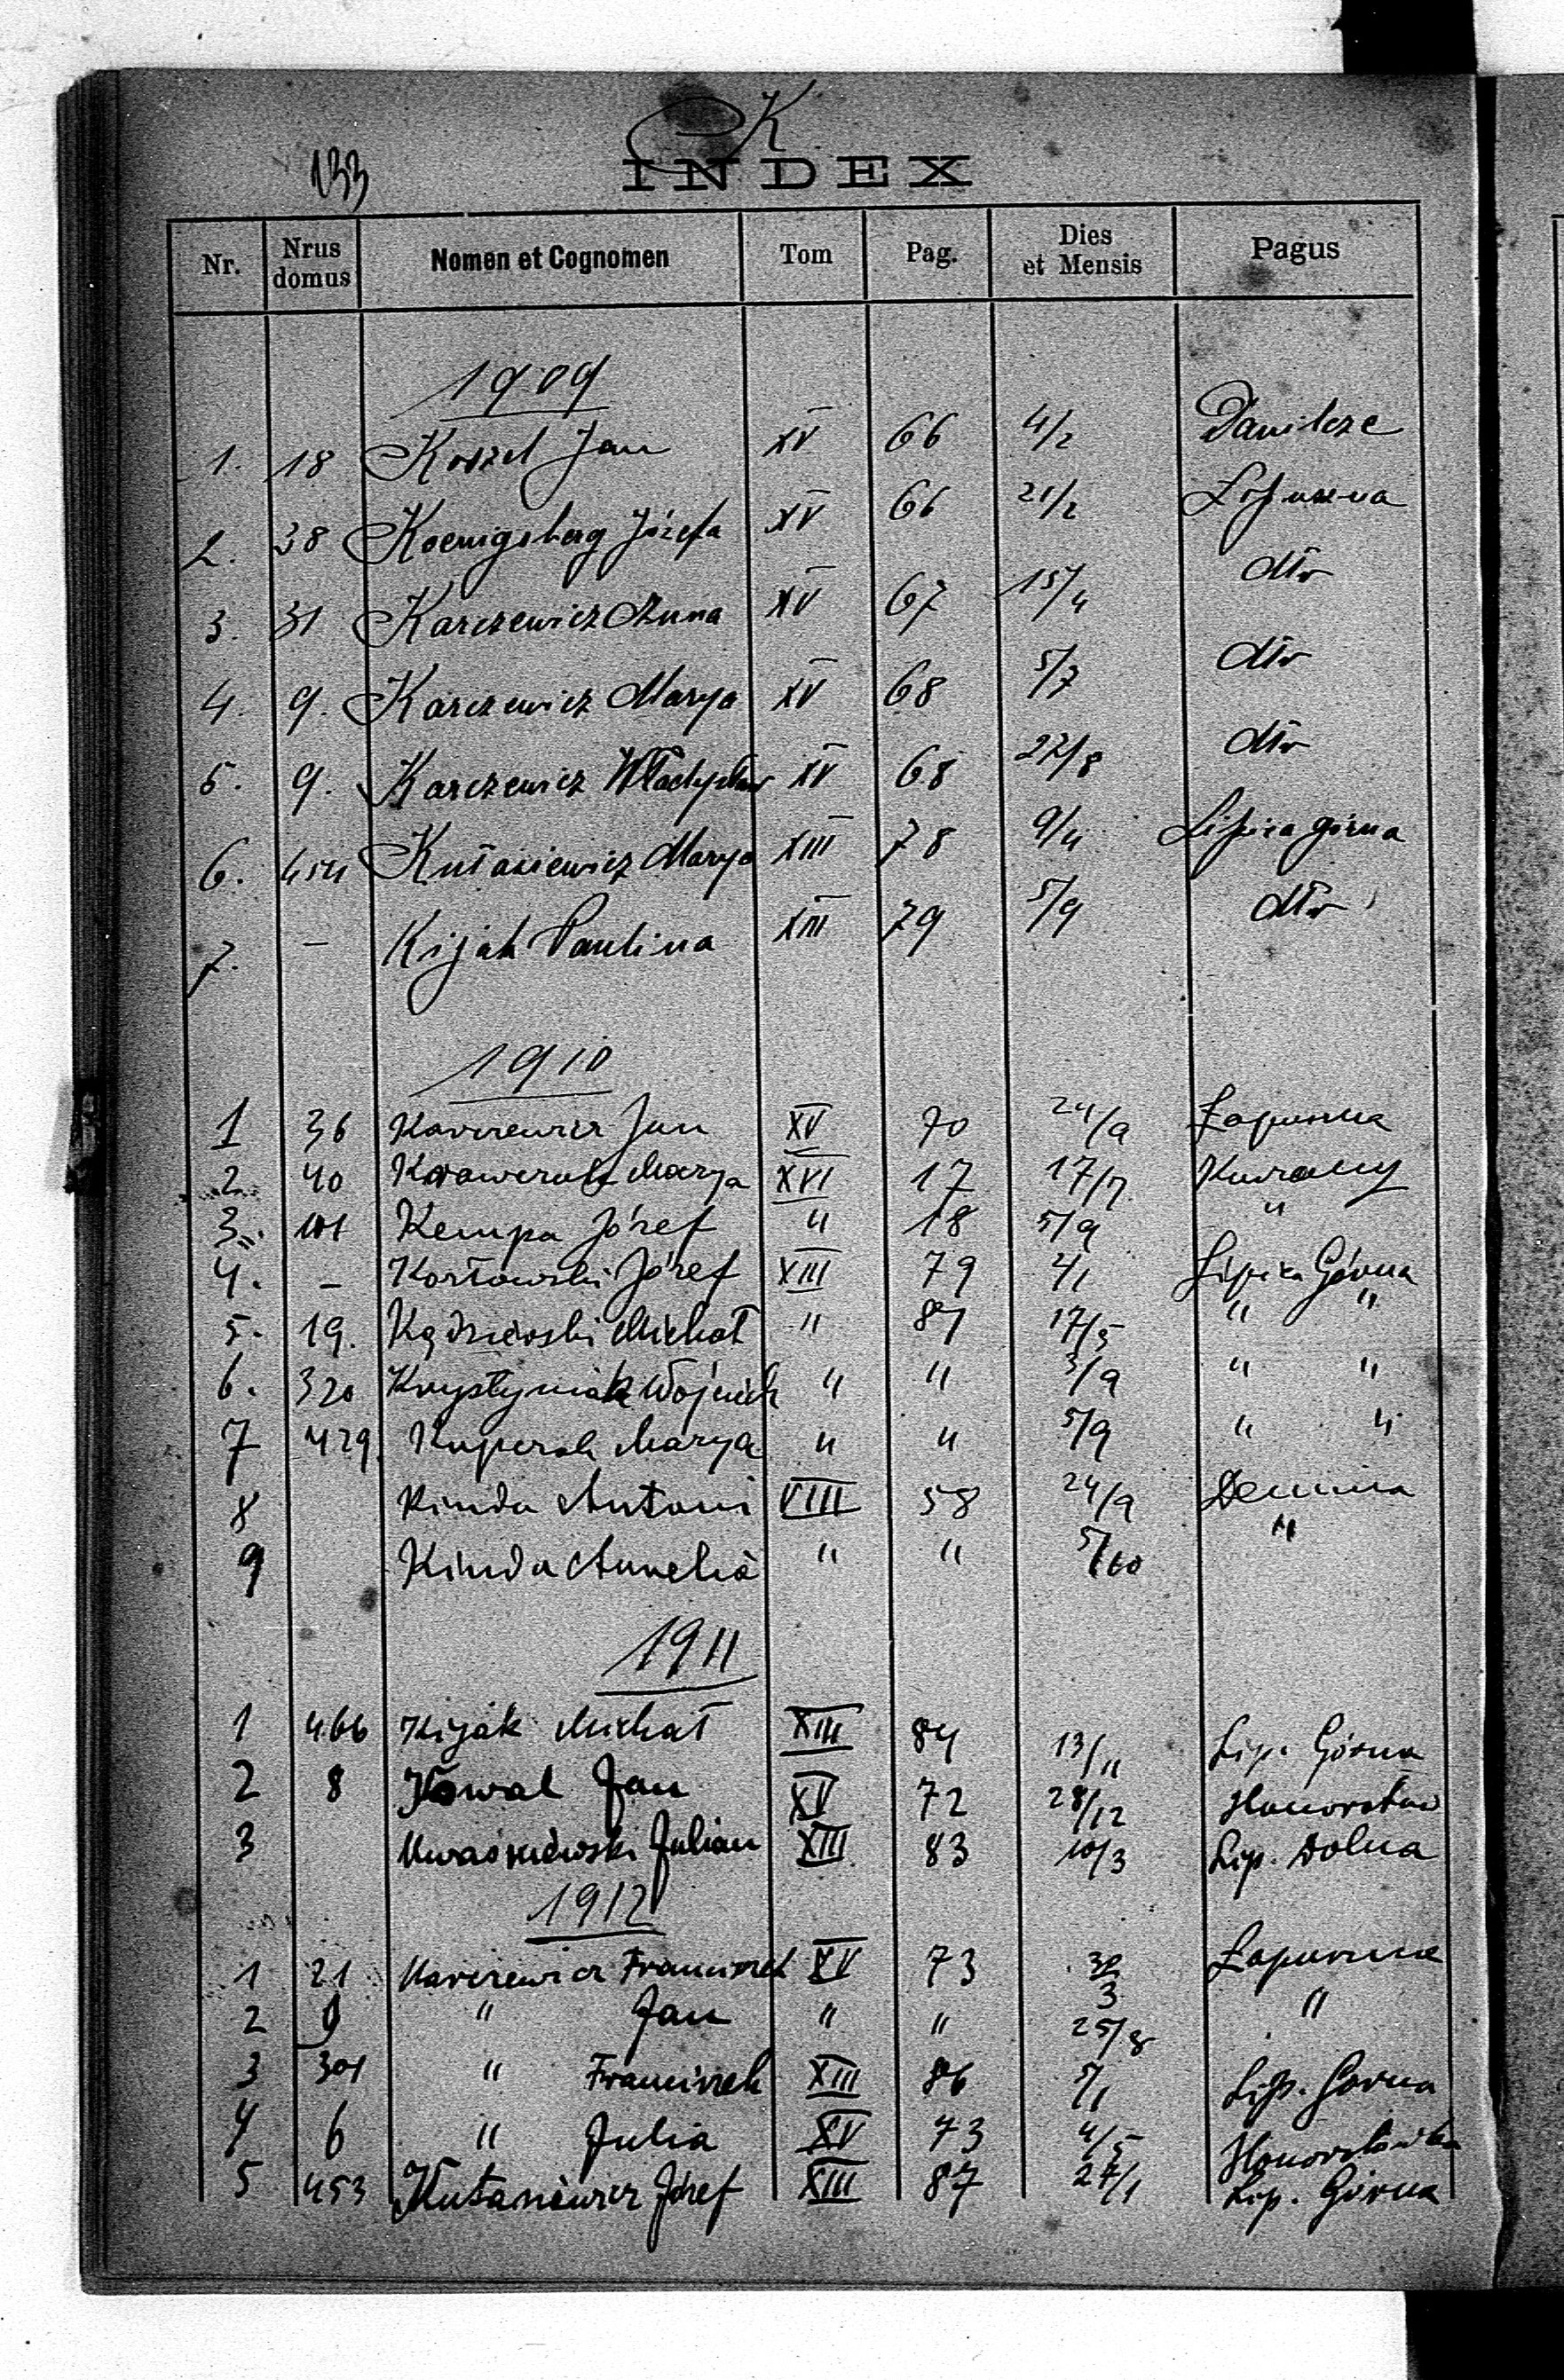 K
133
INDEX
Nr. Nrus domus Nomen et Cognomen Tom Pag. Dies et Mensis Pagus
1909
1. 18 Koszel Jan XV 66 4/2 Danilcze
2. 38 Koenigsberg Józefa XV 66 21/2 Łopuszna
3. 31 Karczewicz Anna XV 67 15/4 dtto
4. 9. Karczewicz Marya XV 68 5/7 dtto
5. 9. Karczewicz Władysław XV 68 22/8 dtto
6. 454 Kułakiewicz Marya XIII 78 9/4 Lipica górna
7. – Kijak Paulina XIII 79 5/9 dtto
1910
1 36 Karczewicz Jan XV 70 24/9 Łopuszna
2 40 Marya XVI 17 17/7
3. 101 Kempa Józef " 18 5/9 "
4. – Kozłowski Józef XIII 79 2/1 Lipica Górna
5. 19. Michał " 81 17/5 " "
6. 320 Krystyniak Wojciech " " 3/9 " "
7 429 Marya " " 5/9 " "
8 Kinda Antoni VIII 58 24/9 Demnia
9 Kinda Aurelia " " 5/10 "
1911
1 466 Kijak Michał XIII 84 13/11 Lip. Górna
2 8 Kowal Jan XV 72 28/12
3 Kwaśniewski Julian XIII 83 10/3 Lip. Dolna
1912
1 21 Karczewicz Franciszek XV 73 3 Łopuszna
2 9 " Jan " " 25/8 "
3 301 " Franciszek XIII 86 5/1 Lip. Górna
4 6 " Julia XV 73 4/5 Honoratówka
5 453 Kułakiewicz Józef XIII 87 27/1 Lip. Górna